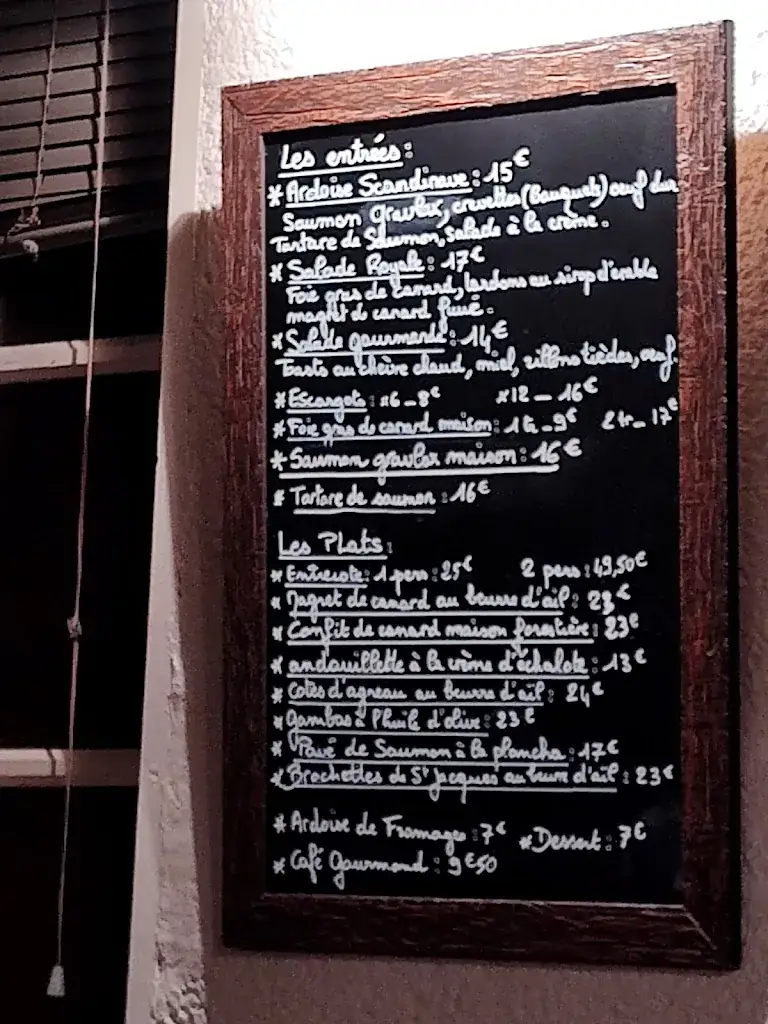 Les entrées :
* Ardoise Scandinave : 15€
Saumon gravlax, crevettes (Bouquets) oeuf dur
Tartare de Saumon, salade à la crème.
* Salade Royale : 17€
Foie gras de canard, lardons au sirop d'érable
magret de canard fumé.
* Salade gourmande : 14€
Toasts au chèvre chaud, miel, rillons tièdes, oeuf.
* Escargots : x6 - 8€ x12 - 16€
* Foie gras de canard maison : 1 tr - 9€ 2 tr - 17€
* Saumon gravlax maison : 16€
* Tartare de saumon : 16€
Les Plats :
* Entrecote : 1 pers : 25€ 2 pers : 49,50€
* Magret de canard au beurre d'ail : 23€
* Confit de canard maison forestière : 23€
* andouillette à la crème d'échalote : 13€
* Cotes d'agneau au beurre d'ail : 24€
* gambas à l'huile d'olive : 23€
* Pavé de Saumon à la plancha : 17€
* Brochettes de St Jacques au beurre d'ail : 23€
* Ardoise de Fromages : 7€ * Dessert : 7€
* Café Gourmand : 9€50